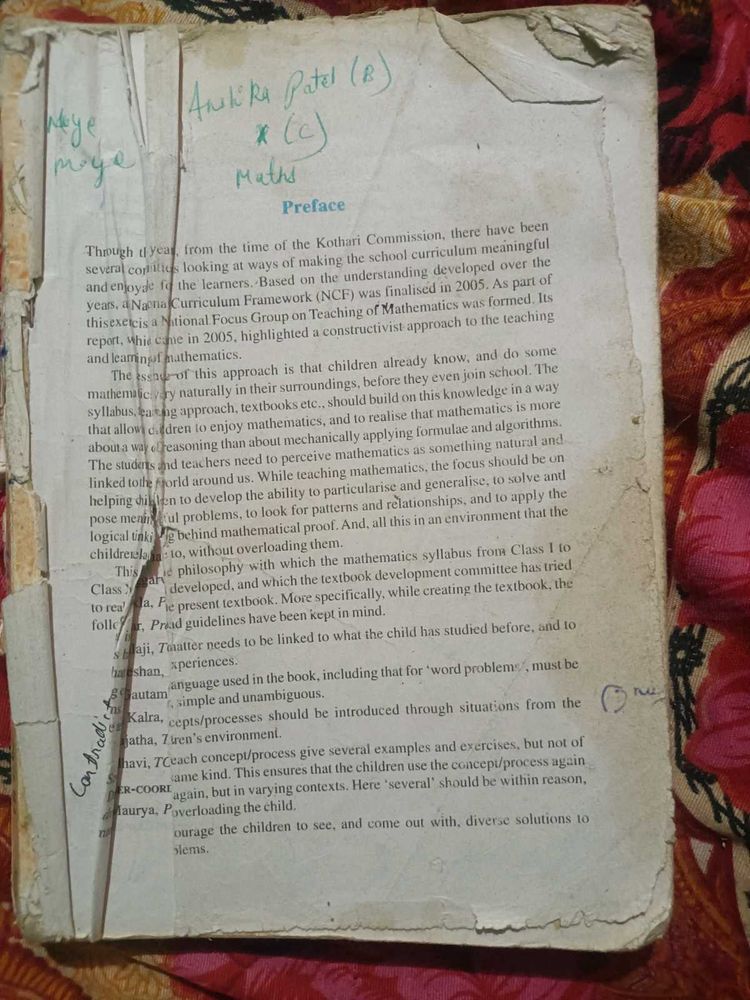 Anshika Patel (B)
Moye
Moye
* (C)
Maths
Preface
Through th year, from the time of the Kothari Commission, there have been
several looking at ways of making the school curriculum meaningful
and the learners. Based on the understanding developed over the
years, a Curriculum Framework (NCF) was finalised in 2005. As part of
this a National Focus Group on Teaching of Mathematics was formed. Its
report, came in 2005, highlighted a constructivist approach to the teaching
and mathematics.
The of this approach is that children already know, and do some
naturally in their surroundings, before they even join school. The
syllabus, approach, textbooks etc., should build on this knowledge in a way
that allow children to enjoy mathematics, and to realise that mathematics is more
about a way of reasoning than about mechanically applying formulae and algorithms.
The students and teachers need to perceive mathematics as something natural and
linked to the world around us. While teaching mathematics, the focus should be on
helping children to develop the ability to particularise and generalise, to solve and
pose problems, to look for patterns and relationships, and to apply the
logical behind mathematical proof. And, all this in an environment that the
to, without overloading them.
This philosophy with which the mathematics syllabus from Class I to
Class developed, and which the textbook development committee has tried
to present textbook. More specifically, while creating the textbook, the
guidelines have been kept in mind.
matter needs to be linked to what the child has studied before, and to
xperiences.
Gautam anguage used in the book, including that for ‘word problems’, must be
simple and unambiguous.
Kalra, cepts/processes should be introduced through situations from the
ren’s environment.
each concept/process give several examples and exercises, but not of
ame kind. This ensures that the children use the concept/process again
ER-COORD again, but in varying contexts. Here ‘several’ should be within reason,
Maurya, P overloading the child.
ourage the children to see, and come out with, diverse solutions to
blems.
Contradict